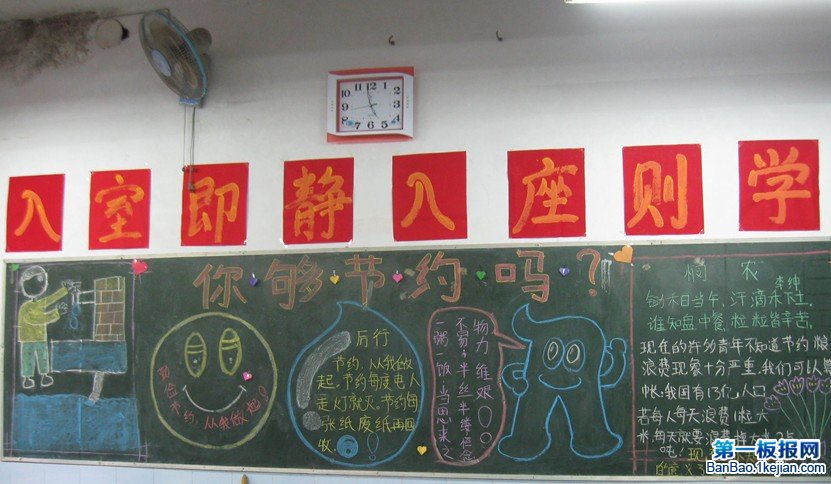 入室即静入座则学
你够节约吗？
勤俭节约，从我做起！
后行
节约，从我做
起。节约每度电人
走灯就灭。节约每
张纸废纸再回
收。
一粥一饭，当思来之
不易；半丝半缕恒念
物力维艰！
悯农
李绅
锄禾日当午，汗滴禾下土.
谁知盘中餐，粒粒皆辛苦.
现在的许多青年不知道节约，粮
浪费现象十分严重，我们可以算
帐：我国有13亿人口
若每人每天浪费1粒大
米，每天就要浪费
吧！
第一板报网
BanBao.1kejian.com